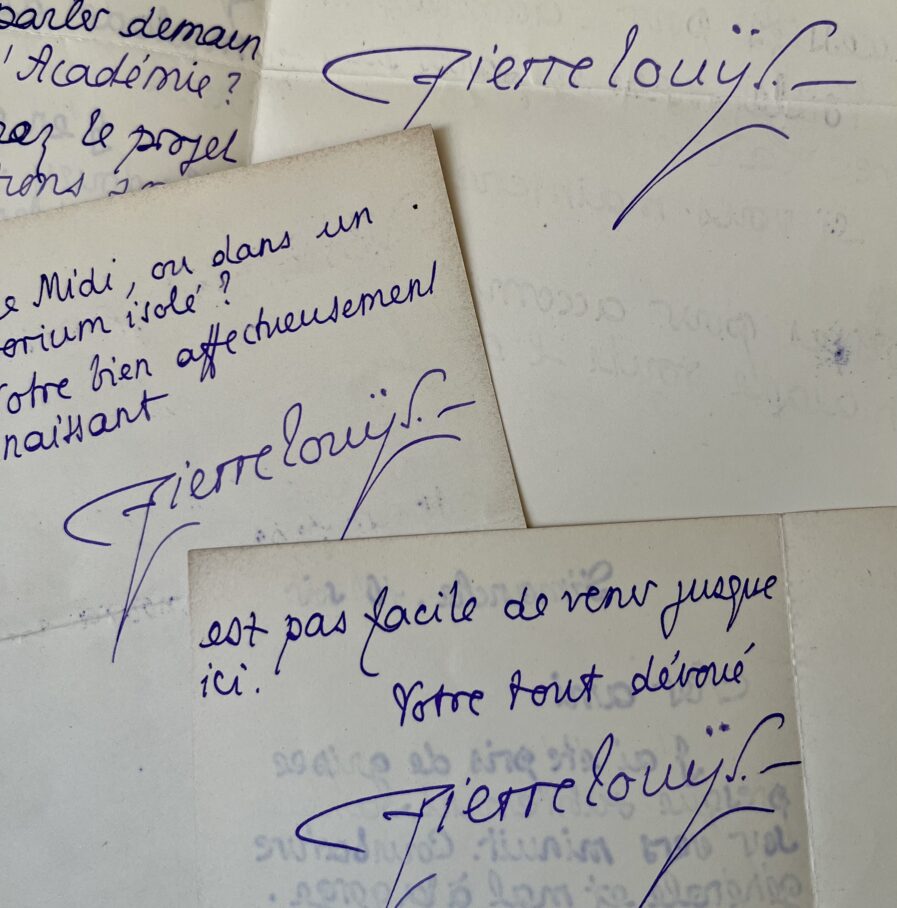 parler demain
'Académie?
le projet
Pierre Louÿs.–
Midi, ou dans un
orium isolé?
otre bien affectueusement
naissant
Pierre Louÿs.–
est pas facile de venir jusque
ici.
Votre tout dévoué
Pierre Louÿs.–